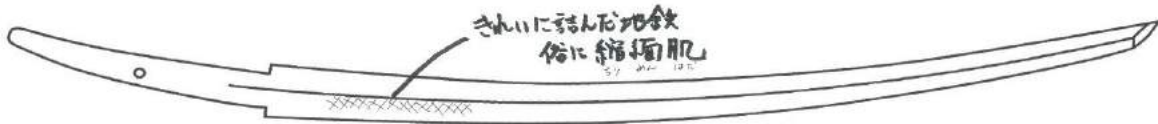 きれいに詰んだ地鉄
俗に縮緬肌
ちりめんはだ